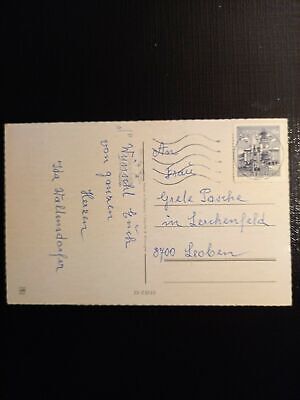 Wünscht Euch
von ganzem
Herzen
Ida Wallensdorfer
An
Frau
Grete Pasche
in Lerchenfeld
8700 Leoben